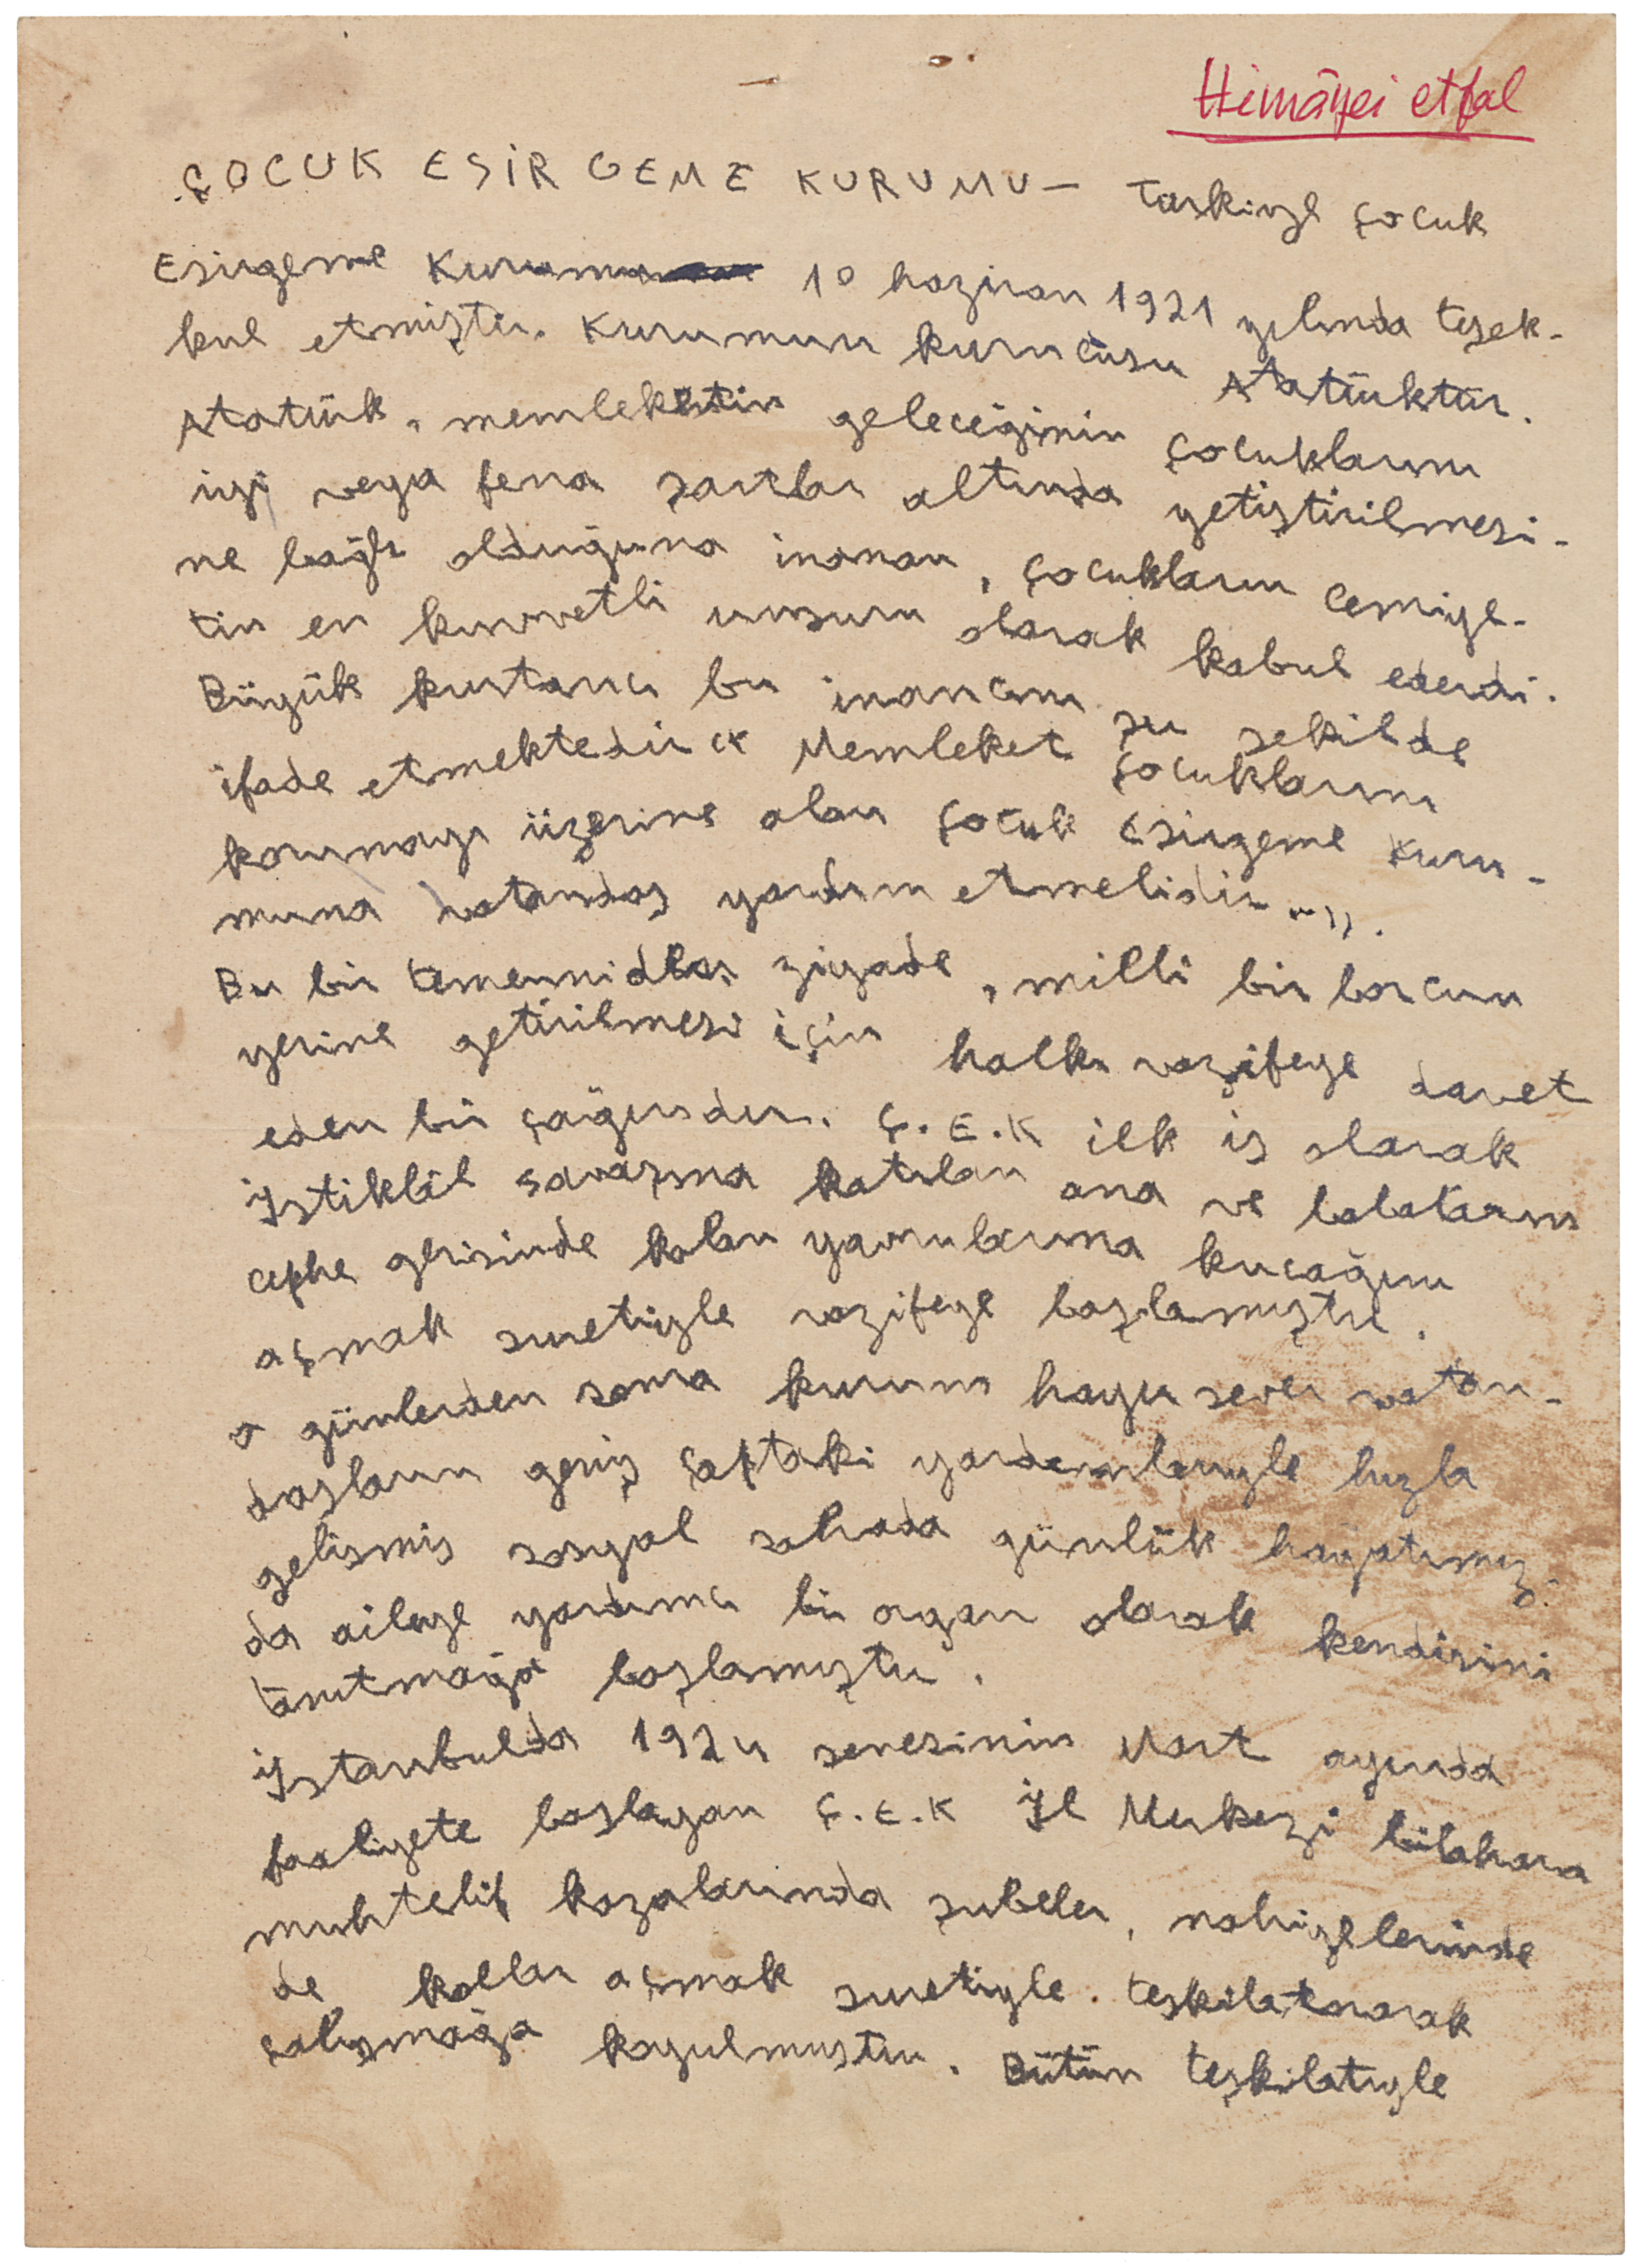 Himâyei etfal
ÇOCUK ESİRGEME KURUMU — Türkiye Çocuk
Esirgeme Kurumu 10 haziran 1921 yılında teşek-
kül etmiştir. Kurumun kurucusu Atatürktür.
Atatürk, memleketin geleceğinin çocukların
iyi veya fena şartlar altında yetiştirilmesi-
ne bağlı olduğuna inanan, çocukların cemiye-
tin en kuvvetli unsuru olarak kabul ederdi.
Büyük kurtarıcı bu inancını şu şekilde
ifade etmektedir « Memleket çocuklarını
korumayı üzerine alan Çocuk Esirgeme Kuru-
muna vatandaş yardım etmelidir...».
Bu bir temenniden ziyade, milli bir borcun
yerine getirilmesi için halkı vazifeye davet
eden bir çağırıdır. Ç.E.K ilk iş olarak
İstiklâl savaşına katılan ana ve babaların
cephe gerisinde kalan yavrularına kucağını
açmak suretiyle vazifeye başlamıştır.
O günlerden sonra kurum hayır sever vatan-
daşların geniş çaptaki yardımlarıyle hızla
gelişmiş sosyal sahada günlük hayatımız-
da aileye yardımcı bir organ olarak kendisini
tanıtmağa başlamıştır.
İstanbulda 1924 senesinin Mart ayında
faaliyete başlayan Ç.E.K İl Merkezi bilahara
muhtelif kazalarında şubeler, nahiyelerinde
de kollar açmak suretiyle. teşkilatlanarak
çalışmağa koyulmuştur. Bütün teşkilatıyle